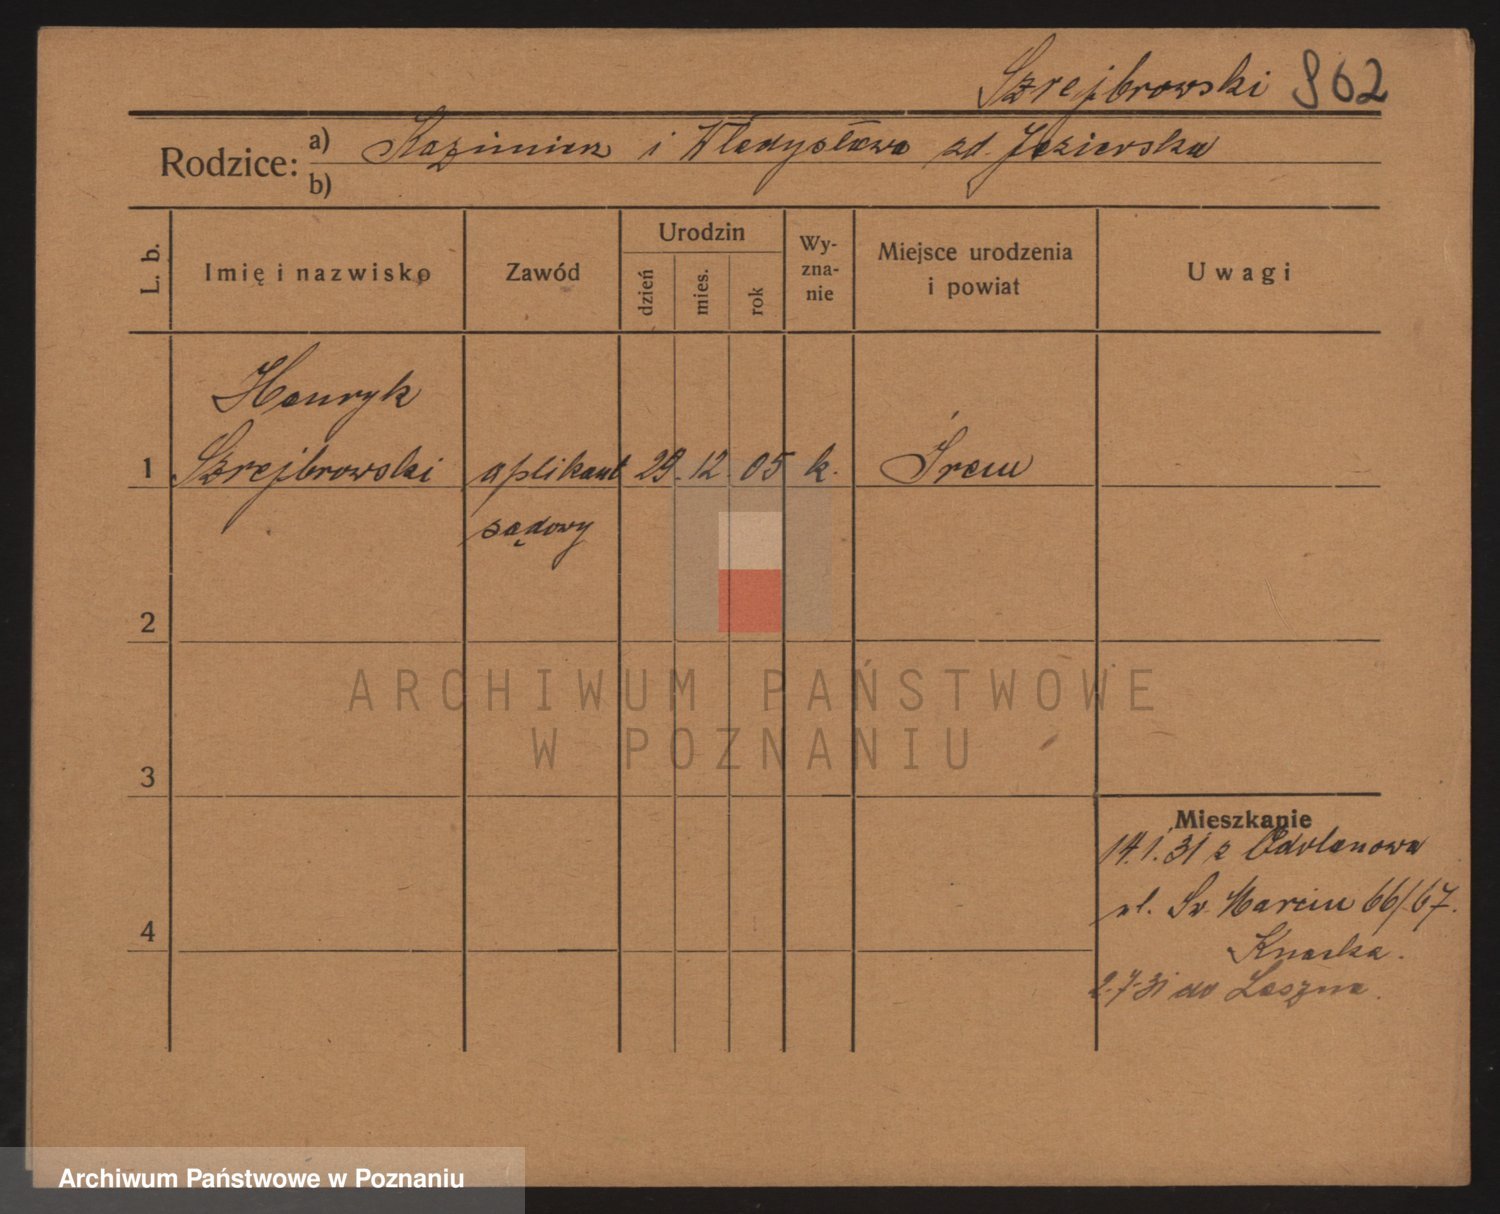 Szrejbrowski 962
Rodzice: a) Kazimierz i Władysława zd. Jezierska
b)
L. b.
Imię i nazwisko
Zawód
Urodzin
dzień
mies.
rok
Wy-
zna-
nie
Miejsce urodzenia
i powiat
Uwagi
Henryk
1 Szrejbrowski aplikant 29. 12. 05 k. Śrem
sądowy
2
3
Mieszkanie
14.1.31 z Odolanowa
ul. Św. Marcin 66/67.
4
2.7.31 do Leszna.
ARCHIWUM PAŃSTWOWE
W POZNANIU
Archiwum Państwowe w Poznaniu